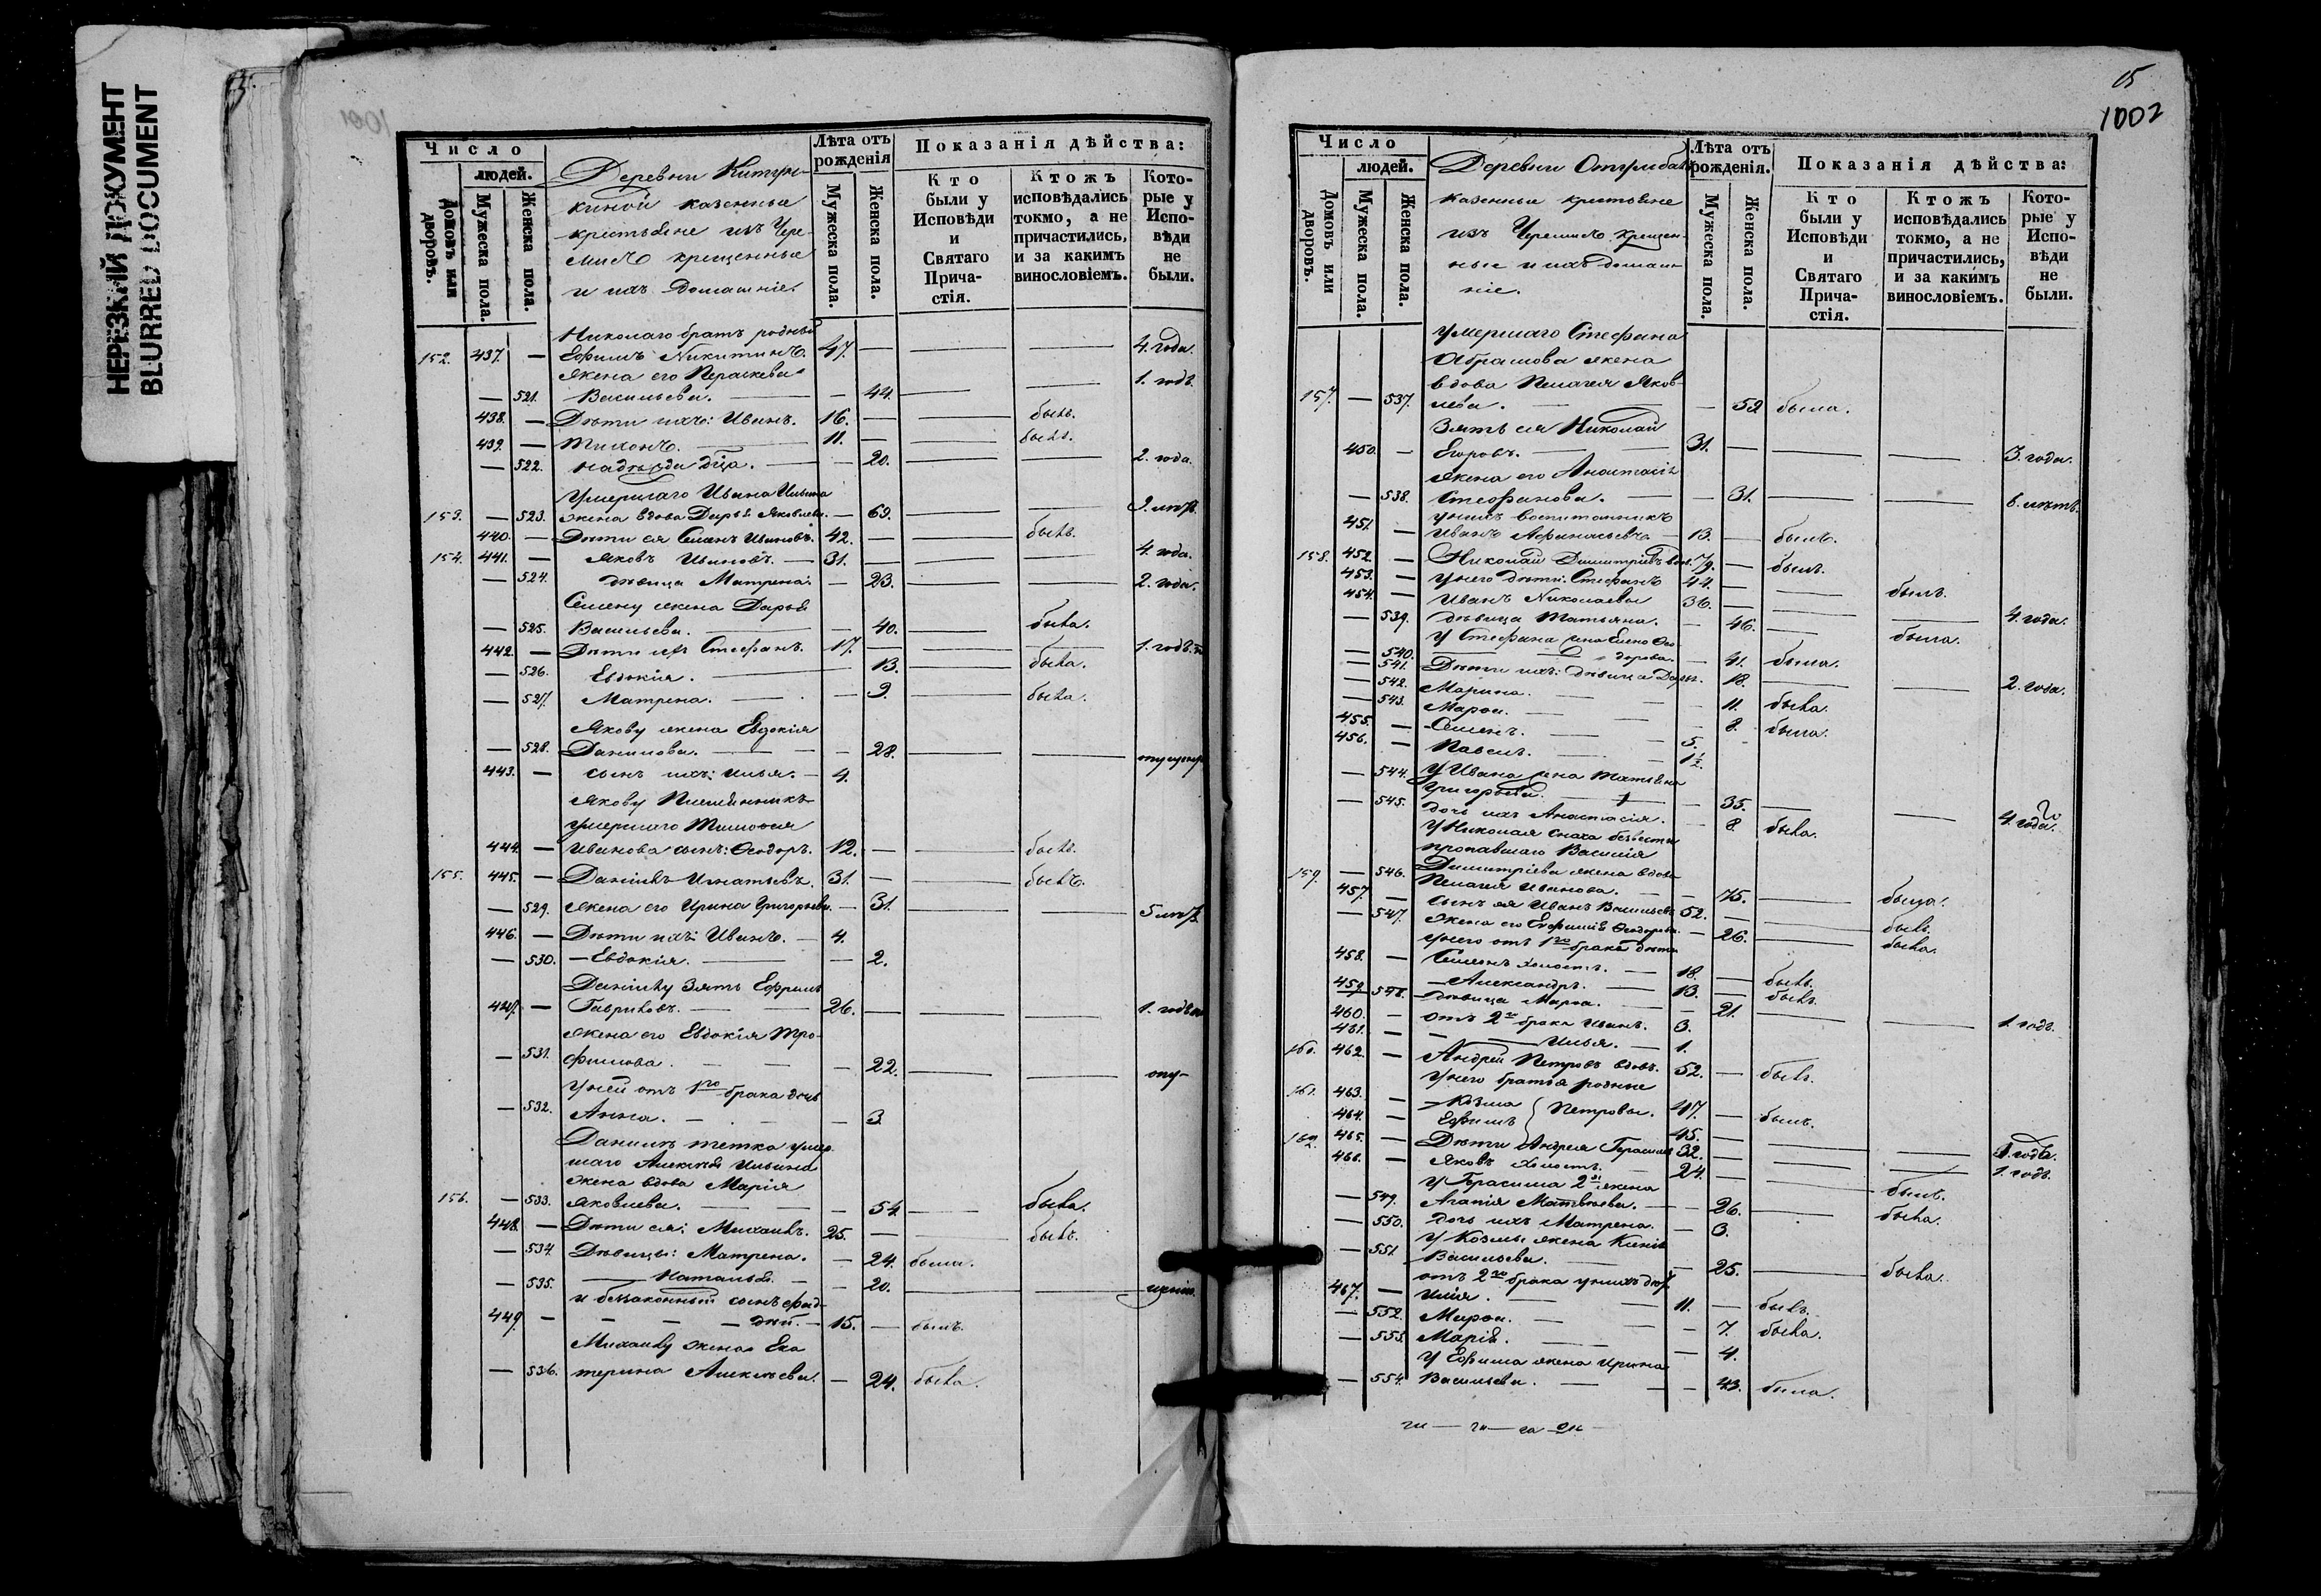 НЕРЕЗКИЙ ДОКУМЕНТ
BLURRED DOCUMENT
Число
людей.
Домовъ или дворовъ.
Мужеска пола.
Женска пола.
Деревни
казенные
крестьяне изъ Чере-
мисъ крещенные
и ихъ домашніе.
Лѣта отъ рожденія
Мужеска пола.
Женска пола.
Показанія дѣйства:
Кто были у Исповѣди и Святаго Прича- стія.
Ктожъ исповѣдались токмо, а не причастились, и за какимъ винословіемъ.
Кото- рые у Испо- вѣди не были.
Николаго братъ родный
152. 437. — Ефимъ Никитинъ. 47. — — — 4. года.
жена его Параскева
— 521. Васильева. — — 44. — — 1. годъ.
438. — Дѣти ихъ: Иванъ. 16. — — былъ.
439. — Тихонъ. — 11. — — былъ.
— 522. — — 20. — — 2. года.
умершаго Ивана Ильина
153. — 523. жена вдова Дарья Яковлева. — 69. — —
440. — Дѣти ея Семенъ Ивановъ. 42. — — былъ.
154. 441. — Яковъ Ивановъ. — 31. — — — 4. года.
— 524. дѣвица Матрена. — 23. — — 2. года.
Семену жена Дарья
— 525. Васильева. — — 40. — была.
442. — Дѣти ихъ Стефанъ. 17. — — — 1. годъ.
— 526. Евдокія. — 13. — была.
— 527. Матрена. — — 9. — была.
Якову жена Евдокія
— 528. Данилова. — — — 28. — —
443. — сынъ ихъ: Илья. — 4.
Якову племянникъ
умершаго Тимофея
444. — Иванова сынъ: Ѳеодоръ. 12. — — былъ.
155. 445. — Даніилъ Игнатьевъ. 31. — — былъ.
— 529. жена его Ирина Григорьева. — 31. — — 5 лѣтъ.
446. — Дѣти ихъ: Иванъ. — 4.
— 530. — Евдокія. — — 2.
Даніилу зять Ефремъ
447. — Гавриловъ. — — 26. — — — 1. годъ
жена его Евдокія Тро-
— 531. фимова. — — — 22. — —
у ней отъ 1го брака дочь
— 532. Анна. — — — 3.
Даніилу тетка умер-
шаго Алексѣя Ильина
жена вдова Марія
156. — 533. Яковлева. — — — 54. — была.
448. — Дѣти ея: Михаилъ. 25. — — былъ.
— 534. Дѣвицы: Матрена. — 24. была.
— 535. — Наталья. — — 20. — —
и беззаконный сынъ
449. — — — — — 15. — былъ.
Михаилу жена Ека-
— 536. терина Алексѣева. — 24. была.
15
1002
Число
людей.
Домовъ или дворовъ.
Мужеска пола.
Женска пола.
Деревни
казенные крестьяне
изъ Черемисъ крещен-
ные и ихъ домаш-
ніе.
Лѣта отъ рожденія.
Мужеска пола.
Женска пола.
Показанія дѣйства:
Кто были у Исповѣди и Святаго Прича- стія.
Ктожъ исповѣдались токмо, а не причастились, и за какимъ винословіемъ.
Кото- рые у Испо- вѣди не были.
умершаго Стефана
Абрамова жена
вдова Пелагея Яков-
157. — 537. лева. — — — 52 была.
Зять ея Николай
450. — Егоровъ. — 31. — — — 3. года.
жена его Анастасія
— 538. Стефанова. — — 31. — — 8. лѣтъ.
у нихъ воспитанникъ
451. — Иванъ Афанасьевъ. — 13. — былъ.
158. 452. — Николай Димитріевъ вдов. 79. — былъ.
453. — у него дѣти: Стефанъ 44. — — былъ.
454. — Иванъ Николаевы 36. — — — 4. года.
— 539. дѣвица Татьяна. — 46. — была.
у Стефана жена Елена Ѳео-
— 540. дорова. — 41. была.
— 541. Дѣти ихъ: дѣвица Дарья. 18. — — 2. года.
— 542. Марина. — — — 11. была.
— 543. Марѳа. — — — 8. была.
455. — Семенъ. — — 5.
456. — Павелъ. — — 1½.
— 544. у Ивана жена Татьяна
Григорьева. — — 35. — — 4. года.
— 545. дочь ихъ Анастасія. — 8. была.
у Николая сноха безвѣстно
пропавшаго Василія
159. — 546. Димитріева жена вдова
Пелагея Иванова. — — 75. — была.
457. — сынъ ея Иванъ Васильевъ 52. — — былъ.
— 547. жена его Евфимія Ѳеодорова. — 26. — была.
у него отъ 1го брака дѣти
458. — Семенъ холостъ. — 18. — былъ.
459. — Александръ. — 13. — былъ.
548. дѣвица Марѳа. — — 21. — — 1. годъ.
460. — отъ 2го брака Иванъ. 3.
461. — — Илья. — 1.
160. 462. — Андрей Петровъ вдовъ. 52. — былъ.
у него братья родные
161. 463. — Козьма } Петровы. 47. — былъ.
464. — Ефимъ 45. — — — 1. годъ.
162. 465. — Дѣти Андрея Герасимъ 32. — — — 1. годъ.
466. — Яковъ холостъ. — 24. — — былъ.
у Герасима 2я жена
— 549. Агапія Матвѣева. — — 26. — была.
— 550. дочь ихъ Матрена. — 3.
у Козьмы жена Ксенія
— 551. Васильева. — — 25. — была.
отъ 2го брака у нихъ дѣт.
467. — Илія. — — 11. — былъ.
— 552. Марѳа. — — — 7. была.
— 553. Марія. — — 4.
у Ефима жена Ирина
— 554. Васильева. — — — 43. была.